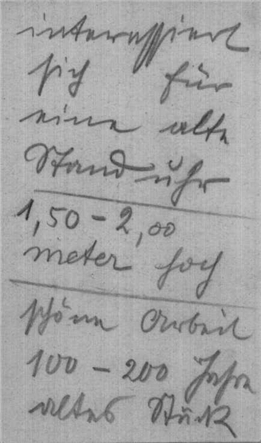 interessiert
sich für
eine alte
Standuhr
1,50 - 2,00
meter hoch
schöne Arbeit
100 - 200 Jahre
altes Stück